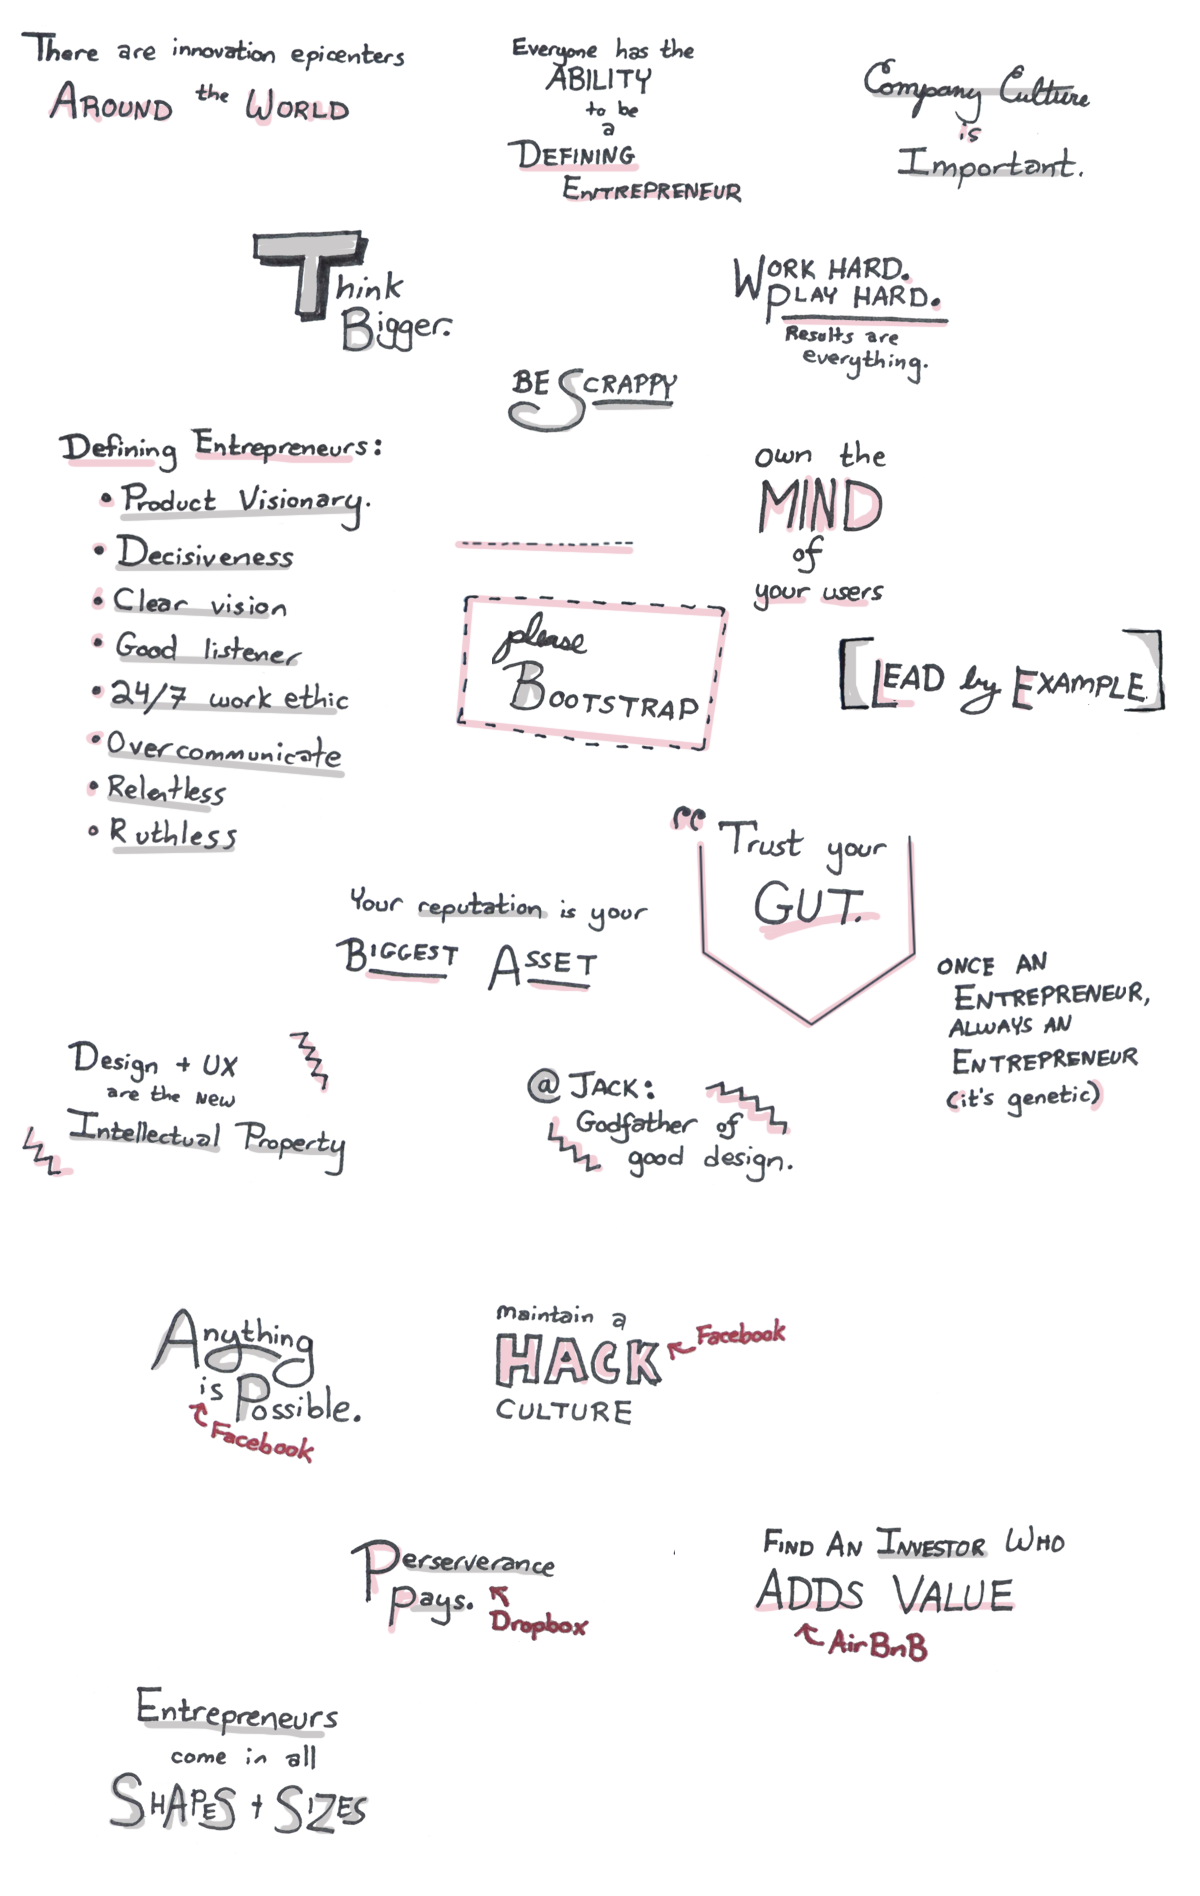 There are innovation epicenters
AROUND the WORLD
Everyone has the
ABILITY
to be
a
DEFINING
ENTREPRENEUR
Company Culture
is
Important.
Think
Bigger.
WORK HARD.
PLAY HARD.
Results are
everything.
BE SCRAPPY
Defining Entrepreneurs:
• Product Visionary.
• Decisiveness
• Clear vision
• Good listener
• 24/7 work ethic
• Overcommunicate
• Relentless
• Ruthless
own the
MIND
of
your users
please
BOOTSTRAP
[LEAD by EXAMPLE]
“Trust your
GUT.
Your reputation is your
BIGGEST ASSET
ONCE AN
ENTREPRENEUR,
ALWAYS AN
ENTREPRENEUR
(it's genetic)
Design + UX
are the new
Intellectual Property
@JACK:
Godfather of
good design.
Anything
is Possible.
Facebook
maintain a
HACK
CULTURE
Facebook
Perserverance
Pays.
Dropbox
FIND AN INVESTOR WHO
ADDS VALUE
AirBnB
Entrepreneurs
come in all
SHAPES + SIZES